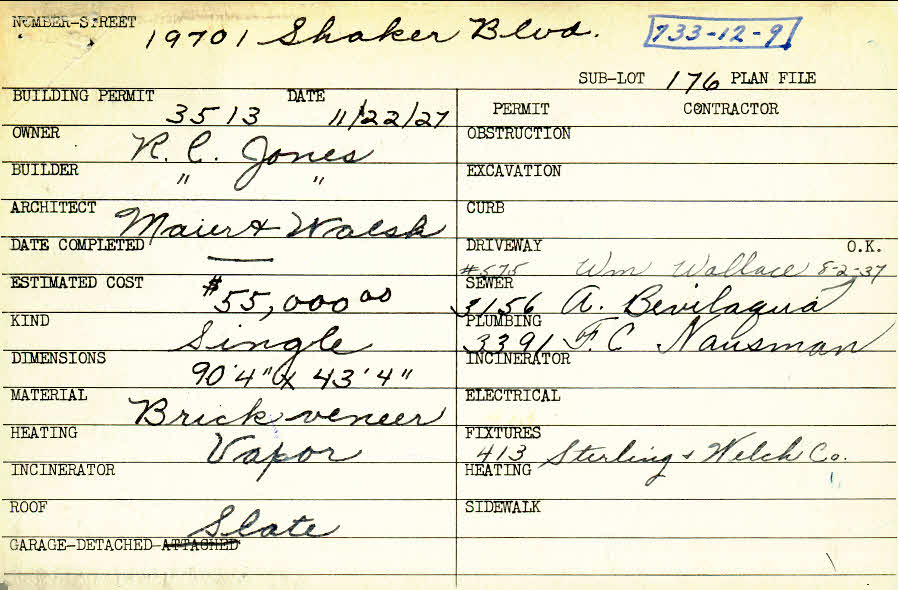 NUMBER-STREET 19701 Shaker Blvd. 733-12-9
SUB-LOT 176 PLAN FILE
BUILDING PERMIT 3513 DATE 11/22/27
PERMIT CONTRACTOR
OWNER R. C. Jones
OBSTRUCTION
BUILDER " "
EXCAVATION
ARCHITECT Maier & Walsh
CURB
DATE COMPLETED —
DRIVEWAY #575 Wm Wallace 8-2-37 O.K.
ESTIMATED COST $55,000.00
SEWER 3156 A. Bevilaqua
KIND Single
PLUMBING 3391 F. C Nausman
DIMENSIONS 90'4" x 43'4"
INCINERATOR
MATERIAL Brick veneer
ELECTRICAL
HEATING Vapor
FIXTURES 413 Sterling & Welch Co.
INCINERATOR
HEATING
ROOF Slate
SIDEWALK
GARAGE-DETACHED-ATTACHED